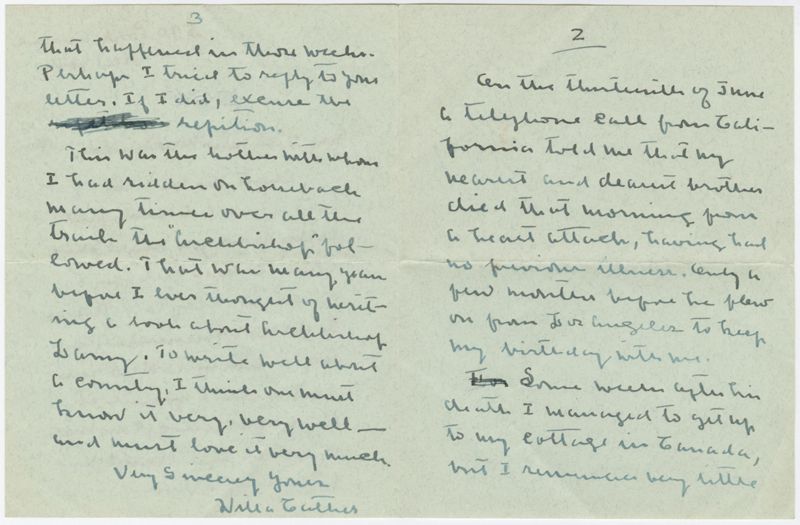 2
On the thirteenth of June
a telephone call from Cali-
fornia told me that my
nearest and dearest brother
died that morning from
a heart attack, having had
no previous illness. Only a
few months before he flew
on from Los Angeles to keep
my birthday with me.
Some weeks after his
death I managed to get up
to my cottage in Canada,
but I remember very little
3
that happened in those weeks.
Perhaps I tried to reply to your
letter. If I did, excuse the
repition.
This was the brother with whom
I had ridden on horseback
many times over all the
trails the "Archbishop" fol-
lowed. That was many years
before I ever thought of writ-
ing a book about Archbishop
Lamy. To write well about
a country, I think one must
know it very, very well—
and must love it very much.
Very Sincerely yours
Willa Cather